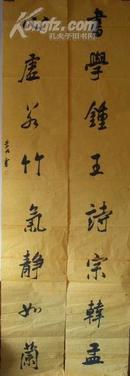 書學鍾王詩宗韓孟
虛若竹氣靜如蘭
孔夫子旧书网